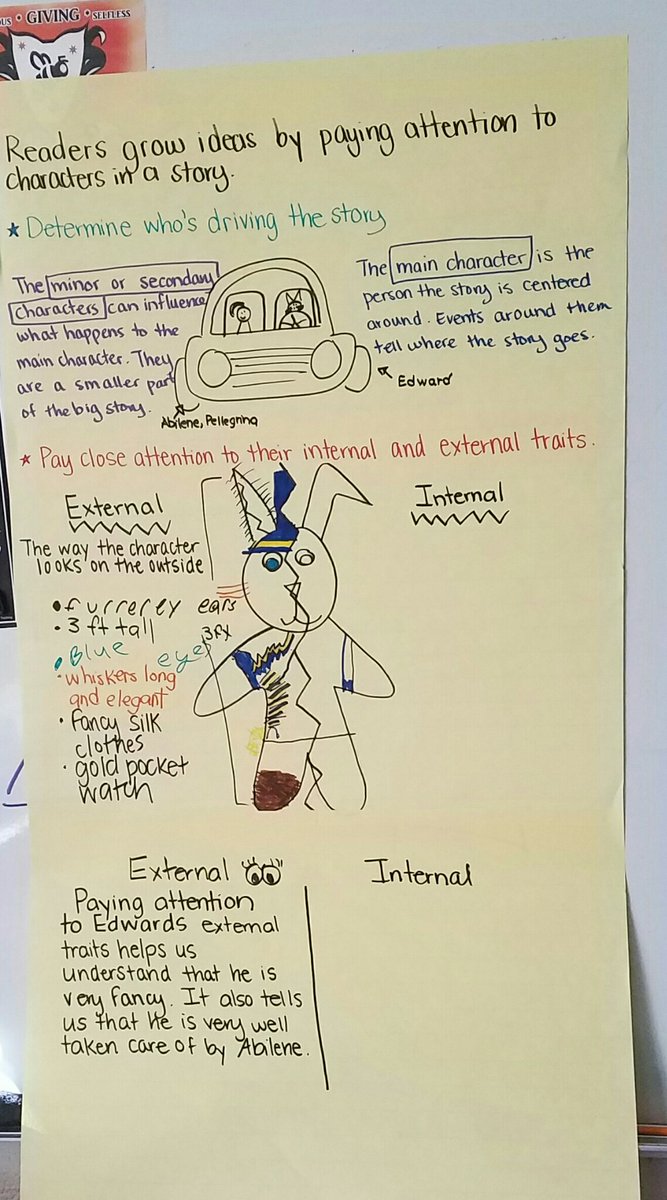 OUS • GIVING • SELFLESS
Readers grow ideas by paying attention to
characters in a story.
★ Determine who's driving the story
The minor or secondary
characters can influence
what happens to the
main character. They
are a smaller part
of the big story.
Abilene, Pellegrina
The main character is the
person the story is centered
around. Events around them
tell where the story goes.
Edward
★ Pay close attention to their internal and external traits.
External
The way the character
looks on the outside
• furrerly ears
• 3 ft tall
• Blue eyes
• whiskers long
and elegant
• fancy silk
clothes
• gold pocket
watch
Internal
External
Paying attention
to Edwards external
traits helps us
understand that he is
very fancy. It also tells
us that he is very well
taken care of by Abilene.
Internal